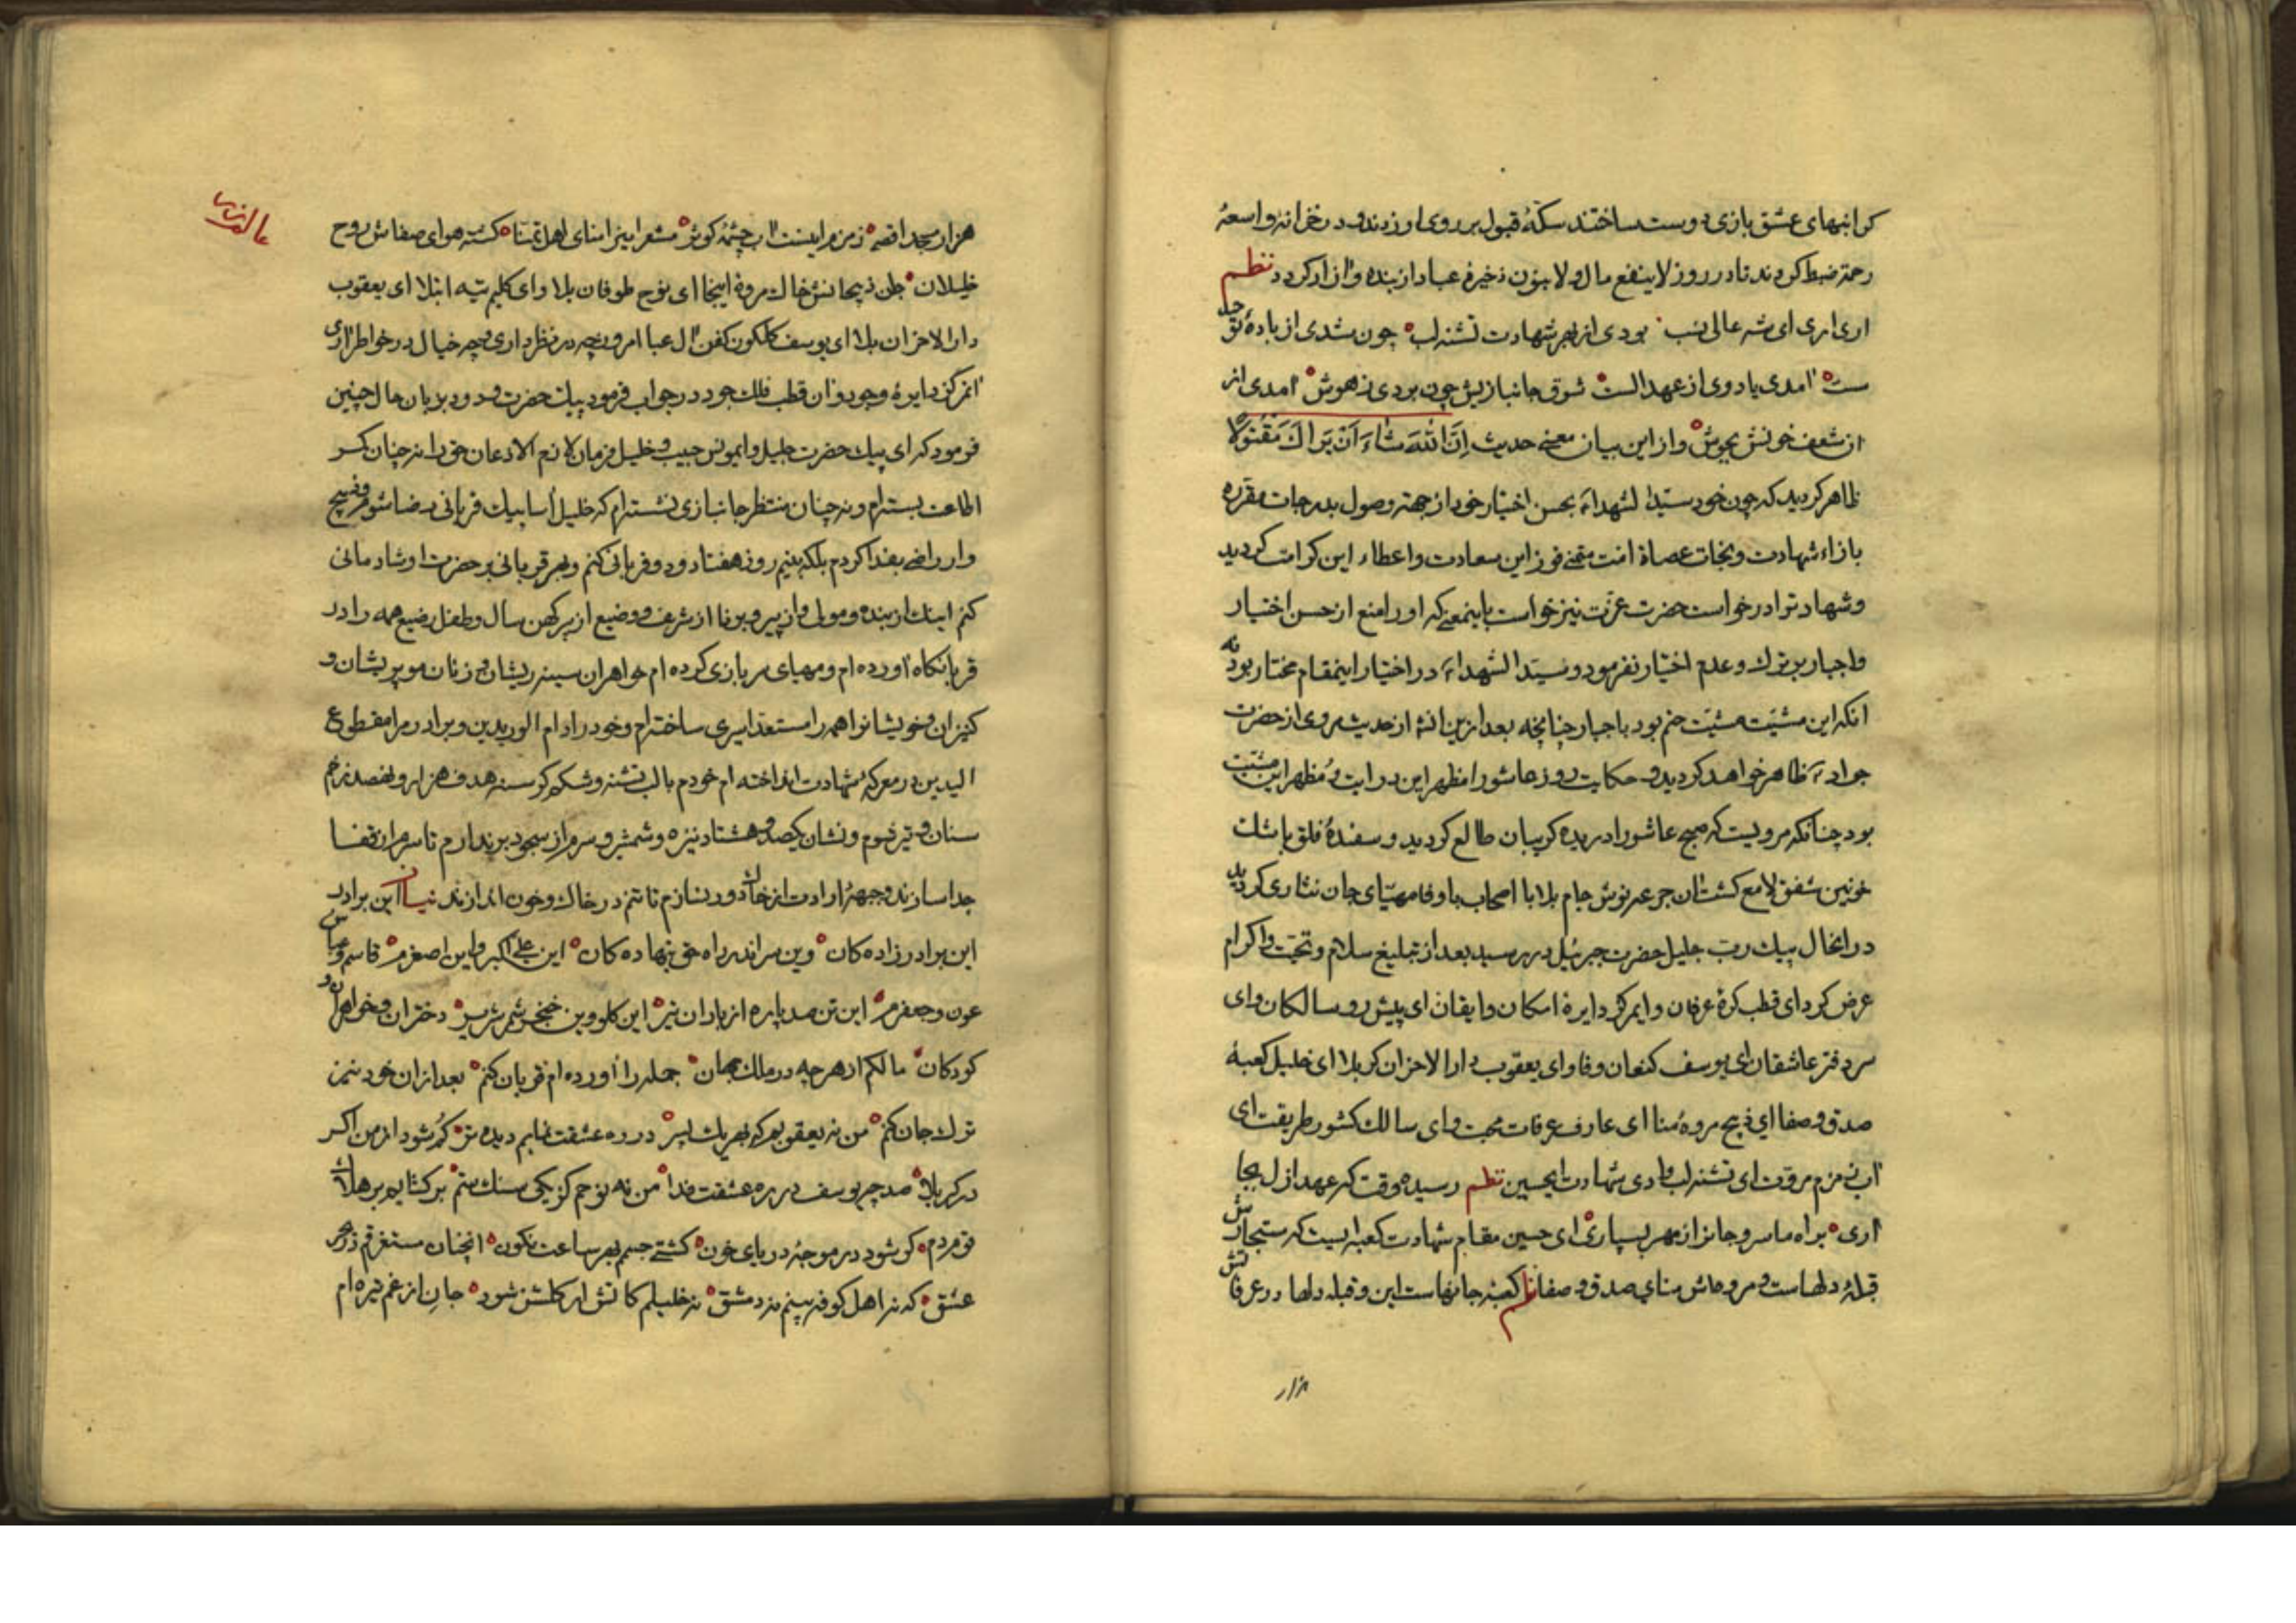 کرانبهای عشق بازی دوست ساختند سکهٔ قبول بر روی او زدند و در خزانه واسعهٔ
رحمة ضبط کردند تا در روز لاینفع مال ولا بنون ذخیره عباد از بنده و ازاد کردد نظم
اری اری ای شه عالی نسب بودی از بهر شهادت تشنه لب چون شدی از بادهٔ
ست امدی یادوی از عهد الست شوق جانبازیش چون بردی ز هوش امدی از
از شعف خونش بجوش و از این بیان معنی حدیث اِنَّ اللّٰهَ شاءَ اَنْ یَراکَ مَقْتُولًا
ظاهر کردید که چون خود سید الشهداء بحسن اختیار خود از جهة وصول بدرجات مقرره
بازاء شهادت و نجات عصاة امت متمنی فوز این سعادت و اعطاء این کرامت کردید
و شهادتوا درخواست حضرت عزت نیز خواست باینمعنی که او را منع از حسن اختیار
و اجبار بر ترک و عدم اختیار نفرمود و سید الشهداء در اختیار اینمقام مختار بود نه
انکه این مشیت مشیت حتم بود باجبار چنانچه بعد ازین انشا از حدیث مروی از حضرت
جواد ظاهر خواهد کردید و حکایت روز عاشورا مظهر این درایت و مظهر این مشیت
بود چنانکه مرویست که صبح عاشورا دریده کریبان طالع کردید و سفندهٔ فلق باشک
خونین شفق لامع کشت ان جرعه نوش جام بلا با اصحاب باوفا مهیای جان نثاری کردید
در انحال پیک رب جلیل حضرت جبرئیل در رسید بعد از تبلیغ سلام و تحیت و اکرام
عرض کرد ای قطب کرهٔ عرفان و ایمرکز دایرهٔ امکان و ایقان ای پیش رو سالکان و ای
سر دفتر عاشقان ای یوسف کنعان وفا و ای یعقوب دارالاحزان کربلا ای خلیل کعبهٔ
صدق و صفا ای ذبیح مروهٔ منا ای عارف عرفات محبت و ای سالک کشور طریقت ای
اب زمزم مروت ای تشنه لب وادی شهادت ایحسین نظم رسیده وقت که عهد ازل بجا
اری براه ما سر و جانرا ز مهر بسپاری ای حسین مقام شهادت کعبه ایست که مستجارش
قبلهٔ دلهاست و مروه اش منای صدق و صفا نظم کعبهٔ جانهاست این و قبله دلها در عرفاتش
هزار
عالقاسا
هزار مسجد اقصه زمزم اینست اب چشمهٔ کوثر مشعر اینرا منای اهل تمنا کشته هوای صفاش روح
خلیلان جان ذبیحانش خاک مروه اینجا ای نوح طوفان بلا و ای کلیم تیه ابتلا ای یعقوب
دارالاحزان بلا ای یوسف کلکون کفن ال عبا امروز چه در نظر داری و چه خیال در خواطر اری
انمرکز دایرهٔ وجود و ان قطب فلک جود در جواب فرمود پیک حضرت ودود بزبان حال چنین
فرمود که ای پیک حضرت جلیل و ایمونس حبیب و خلیل فرمان لازم الاذعان حق را نه چنان کمر
اطاعت بسته ام و نه چنان منتظر جانبازی نشسته ام که خلیل آسا بیک قربانی رضا شوم و ذبیح
وار راضی بفدا کردم بلکه بنیم روز هفتاد و دو قربانی کنم و بهر قربانی بر حضرت او شادمانی
کنم اینک از بنده و مولی و از پیر و برنا از شریف و وضیع از پیر کهن سال و طفل رضیع همه را در
قربانکاه اورده ام و مهیای سر بازی کرده ام خواهران سینه ریشان و زنان مو پریشان و
کنیزان و خویشانرا همه را مستعد اسیری ساخته ام و خود را دام الوریدین و برادر مرا مقطوع
الیدین در معرکهٔ شهادت انداخته ام خودم با لب تشنه و شکم کرسنه هدف هزار و نهصد زخم
سنان و تیر شوم و نشان یکصد و هشتاد نیزه و شمشیر و سرم از سجود برندارم تا سرم از قفا
جدا سازند و جبههٔ ارادت از خاک دور نسازم تا تنم در خاک و خون اندازند نیسان این برادر
این برادر زاده کان وین سر اندر راه حق بنهاده کان این علی اکبر و این اصغرم قاسم و عباس
عون و جعفرم این تن صد پاره از باران تیر این کلو وین خنجر شمر شریر دختران و خواهران و
کودکان مالکم از هر چه در ملک جهان جمله را اورده ام قربان کنم بعد ازان خود نیز
ترک جان کنم من نه یعقوبم که بهر یک پسر در ره عشقت نمایم دیده تر کم شود از من اکر
در کربلا صد چو یوسف در ره عشقت فدا من نه نوحم کز یکی سنک ستم برکشایم بر هلاک
قوم دم کر شود در موجهٔ دریای خون کشتی جسمم بهر ساعت نکون انچنان مستغرقم در بحر
عشق که نه اهل کوفه بینم نه دمشق نه خلیلم کاتش ار کلشن شود جان از غم تیره ام